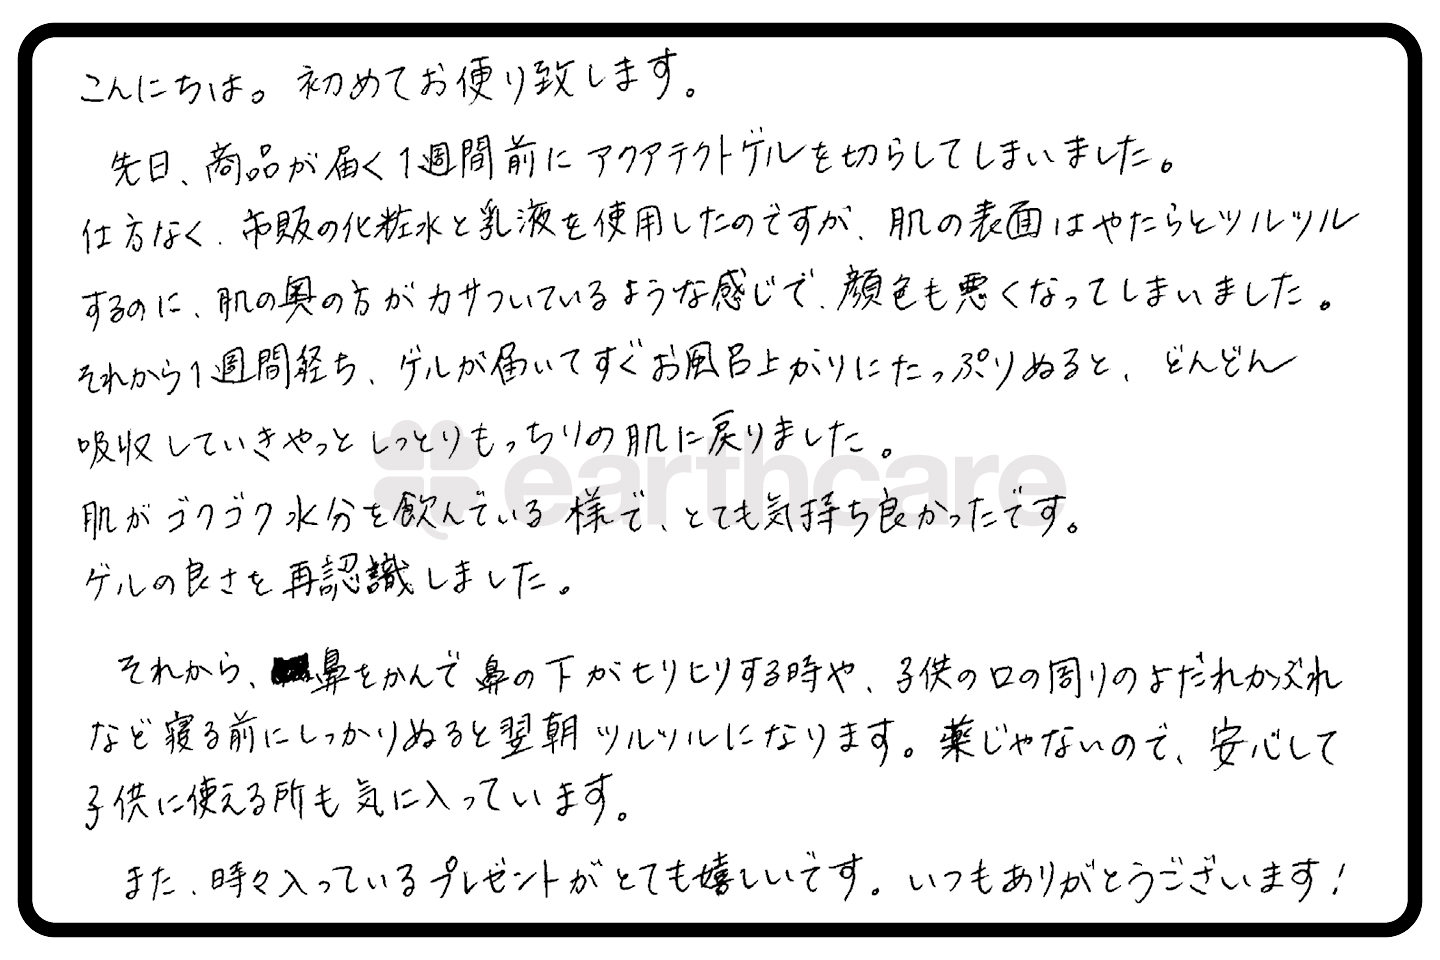 こんにちは。初めてお便り致します。
先日、商品が届く1週間前にアクアテクトゲルを切らしてしまいました。
仕方なく、市販の化粧水と乳液を使用したのですが、肌の表面はやたらとツルツル
するのに、肌の奥の方がカサついているような感じで、顔色も悪くなってしまいました。
それから1週間経ち、ゲルが届いてすぐお風呂上がりにたっぷりぬると、どんどん
吸収していきやっとしっとりもっちりの肌に戻りました。
earthcare
肌がゴクゴク水分を飲んでいる様で、とても気持ち良かったです。
ゲルの良さを再認識しました。
それから、鼻をかんで鼻の下がヒリヒリする時や、子供の口の周りのよだれかぶれ
など寝る前にしっかりぬると翌朝ツルツルになります。薬じゃないので、安心して
子供に使える所も気に入っています。
また、時々入っているプレゼントがとても嬉しいです。いつもありがとうございます!